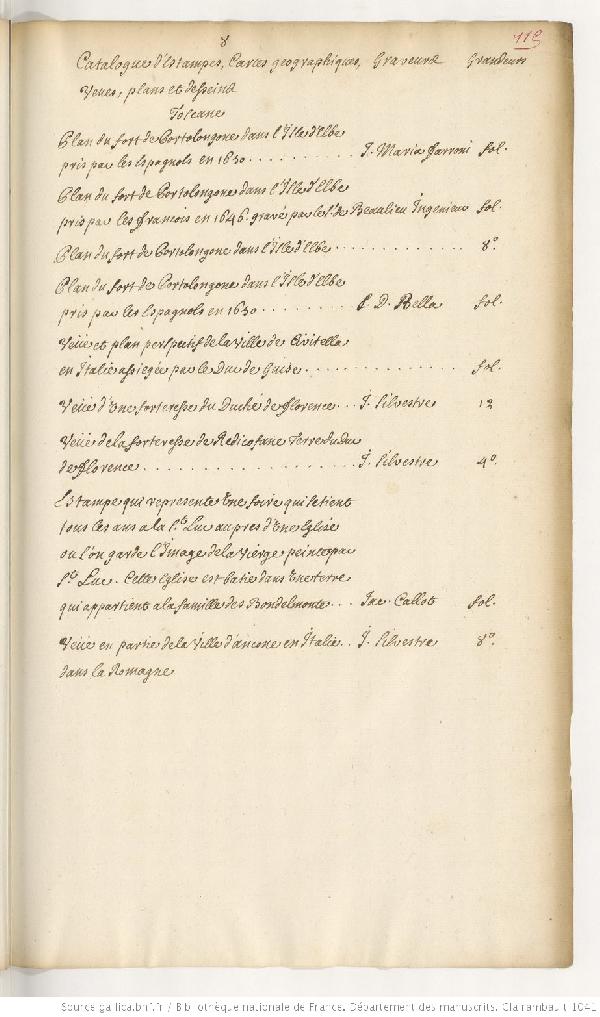 8
113
Catalogue d'Estampes, Cartes geographiques, Graveurs Grandeurs
Veues, plans et desseins
Toscane
Plan du fort de Portolongone dans l'Isle d'Elbe
pris par les Espagnols en 1650 . . . . . . . . . . J. Maria Jarroni fol.
Plan du fort de Portolongone dans l'Isle d'Elbe
pris par les françois en 1646. gravé par le Sr. de Beaulieu Ingenieur fol.
Plan du fort de Portolongone dans l'Isle d'Elbe . . . . . . . . . . . . 8°.
Plan du fort de Portolongone dans l'Isle d'Elbe
pris par les Espagnols en 1650 . . . . . . . . . D. Bella fol.
Veüe et plan perspectif de la Ville de Civitella
en Italie assiegée par le Duc de Guise . . . . . . . . . . . . . . fol.
Veüe d'Une forteresse du Duché de Florence . . . J. Silvestre 12
Veüe de la forteresse de Redicofane Terre du Duc
de Florence . . . . . . . . . . . . . . . . . . . . J. Silvestre 4°.
Estampe qui represente Une foire qui se tient
tous les ans a la St. Luc aupres d'Une Eglise
ou l'on garde l'Image de la Vierge peinte par
St. Luc. Cette Eglise est batie dans Une terre
qui appartient a la famille des Bondelmonte . . . Jac. Callot fol.
Veüe en partie de la Ville d'ancone en Italie . . J. Silvestre 8°.
dans la Romagne
Source gallica.bnf.fr / Bibliothèque nationale de France. Département des manuscrits. Clairambault 1041